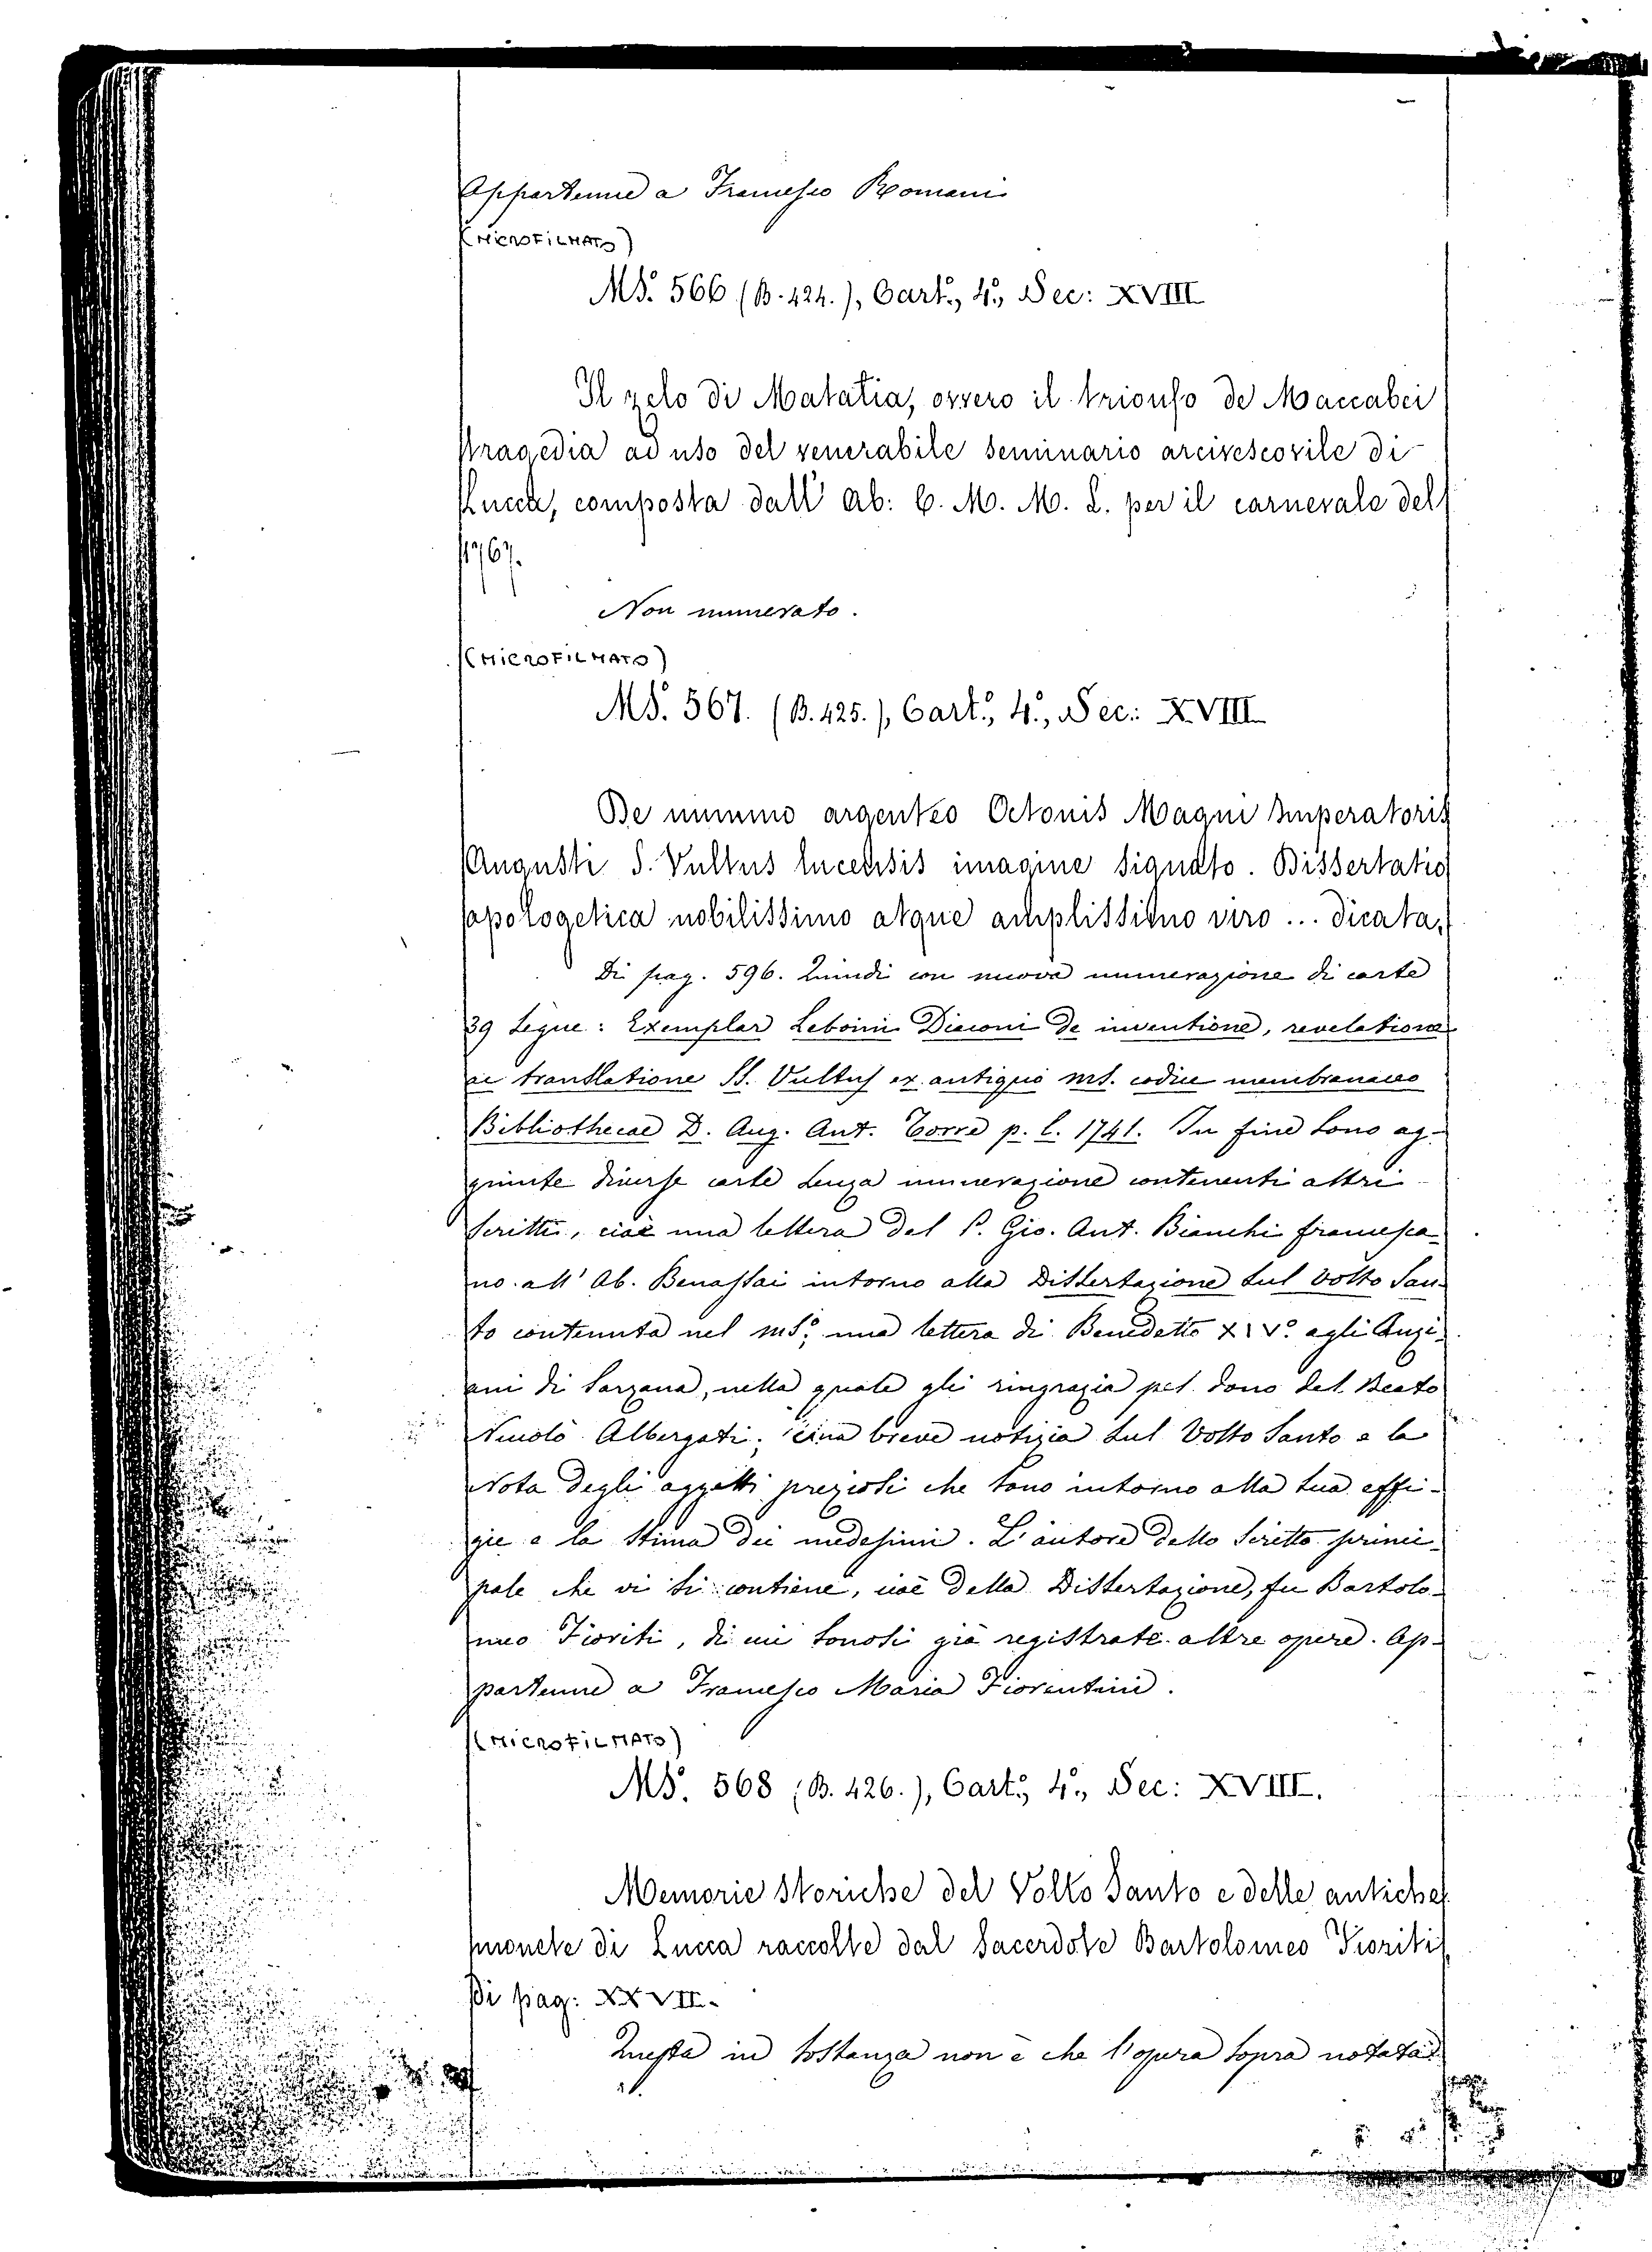 Appartenne a Francesco Romani
(MICROFILMATO)
MS. 566 (B. 424.), Cart.º, 4.º, Sec: XVIII
Il zelo di Matatia, ovvero il trionfo de Maccabei
tragedia ad uso del venerabile seminario arcivescovile di
Lucca, composta dall' ab: C. M. M. L. per il carnevale del
1767.
Non numerato.
(MICROFILMATO)
MS. 567. (B. 425.), Cart.º, 4.º, Sec: XVIII
De nummo argenteo Octonis Magni Imperatoris
Augusti S. Vultus lucensis imagine signato. Dissertatio
apologetica nobilissimo atque amplissimo viro ... dicata.
Di pag. 596. Quindi con nuova numerazione di carte
39 segue: Exemplar Leboini Diaconi de inventione, revelatione
ac translatione SS. Vultus ex antiquo ms. codice membranaceo
Bibliothecae D. Aug. Ant. Torre p. l. 1741. In fine sono ag-
giunte diverse carte senza numerazione contenenti altri
scritti, cioè una lettera del P. Gio. Ant. Bianchi francesca-
no all' Ab. Benassai intorno alla Dissertazione sul Volto San-
to contenuta nel ms.º; una lettera di Benedetto XIV.º agli Anzi-
ani di Sarzana, nella quale gli ringrazia pel dono del Beato
Niccolò Albergati; una breve notizia sul Volto Santo e la
Nota degli oggetti preziosi che sono intorno alla sua effi-
gie e la stima dei medesimi. L'autore dello scritto princi-
pale che vi si contiene, cioè della Dissertazione, fu Bartolo-
meo Fioriti, di cui sonosi già registrate altre opere. Ap-
partenne a Francesco Maria Fiorentini.
(MICROFILMATO)
MS. 568 (B. 426.), Cart.º, 4.º, Sec: XVIII.
Memorie storiche del Volto Santo e delle antiche
monete di Lucca raccolte dal Sacerdote Bartolomeo Fioriti
Di pag: XXVII.
Questa in sostanza non è che l'opera sopra notata